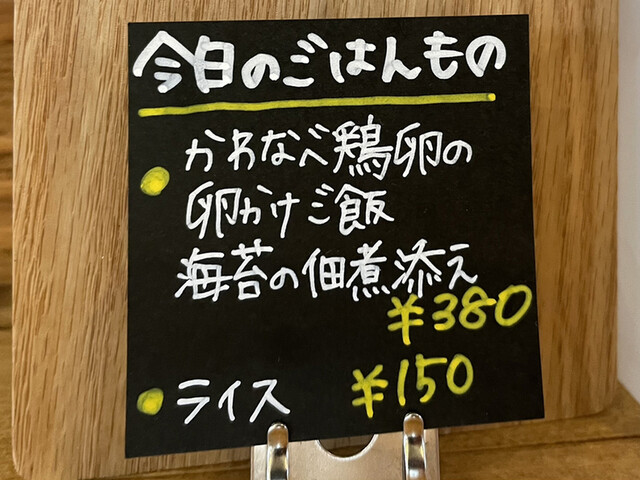 今日のごはんもの
かわなべ鶏卵の
卵かけご飯
海苔の佃煮添え
¥380
ライス ¥150